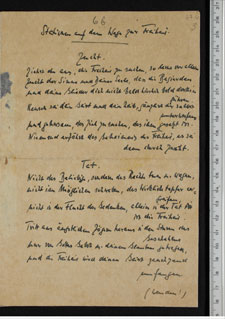 66
Stationen auf dem Wege zur Freiheit
Zucht.
Ziehst du aus, die Freiheit zu suchen, so lerne vor allem
Zucht der Sinne und Deiner Seele, dass die Begierden
und deine Glieder dich nicht bald hierhin bald dorthin
führen
Keusch sei dein Geist und dein Leib, gänzlich dir selbst
unterworfen
und gehorsam, das Ziel zu suchen, das ihm gesetzt ist.
Niemand erfährt das Geheimnis der Freiheit, es sei
denn durch Zucht.
Tat.
Nicht das Beliebige, sondern das Rechte tun und wagen,
nicht im Möglichen schweben, das Wirkliche tapfer er-
greifen,
nicht in der Flucht der Gedanken, allein in der Tat
ist die Freiheit.
Tritt aus ängstlichem Zögern heraus in den Sturm des
Geschehens
nur von Gottes Gebot und deinem Glauben getragen,
und die Freiheit wird deinen Geist jauchzend
umfangen